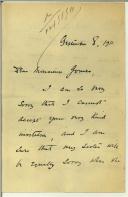 Dear Gomes,
I am so very
sorry that I cannot
accept your very kind
invitation, and I am
sure that my sister will
be equally sorry when she